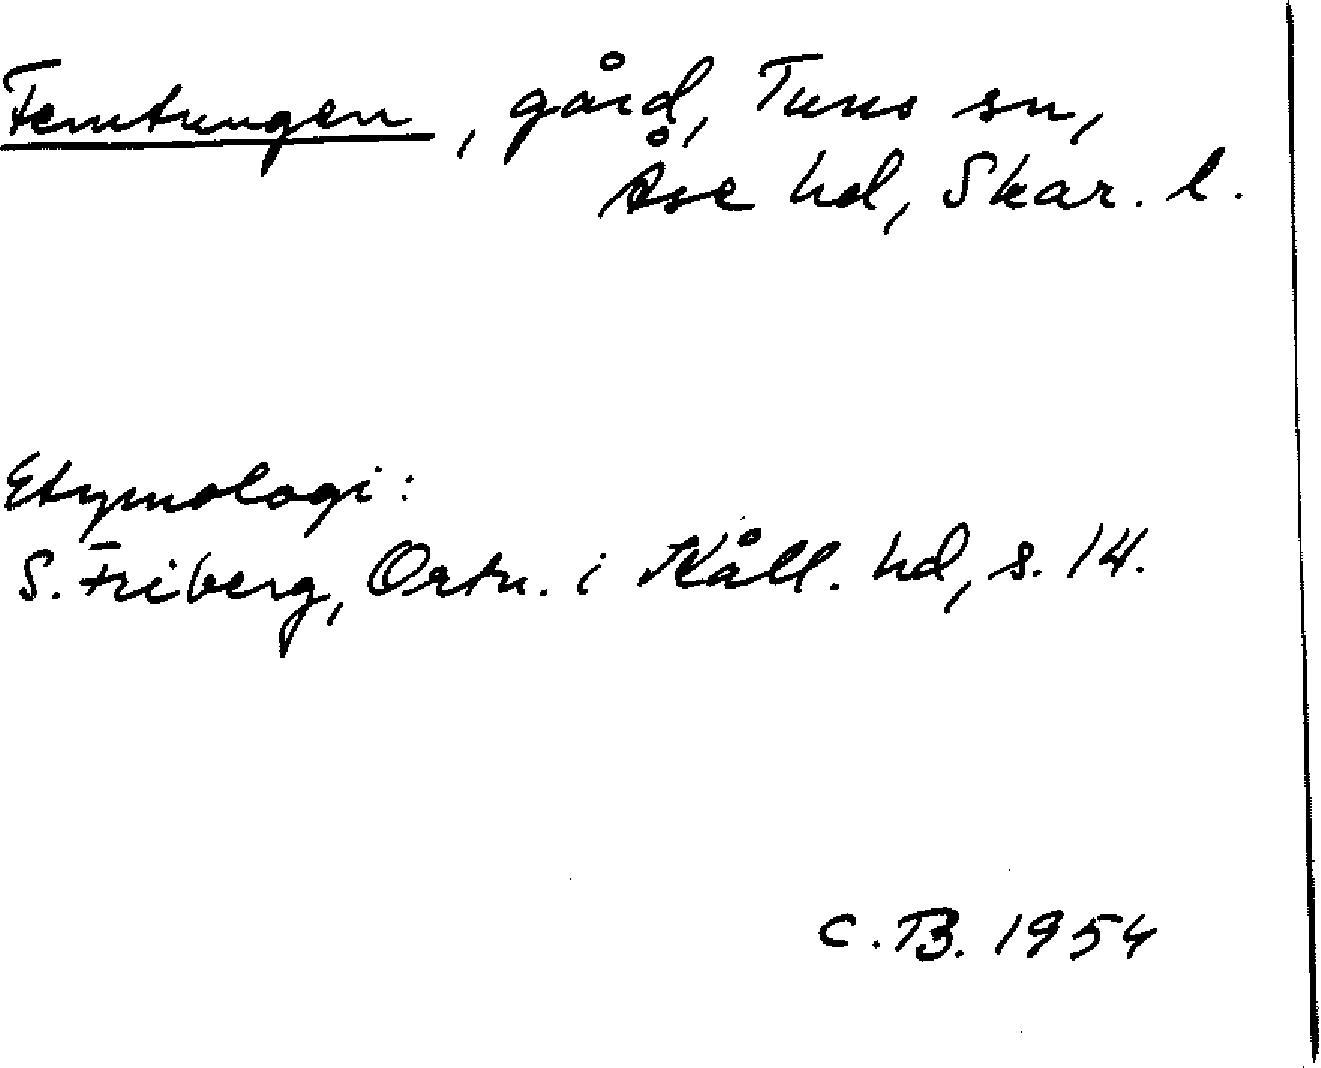 Femtungen, gård, Tuns sn,
Åse hd, Skar. l.
Etymologi:
S. Friberg, Ortn. i Kåll. hd, s. 14.
C. B. 1954